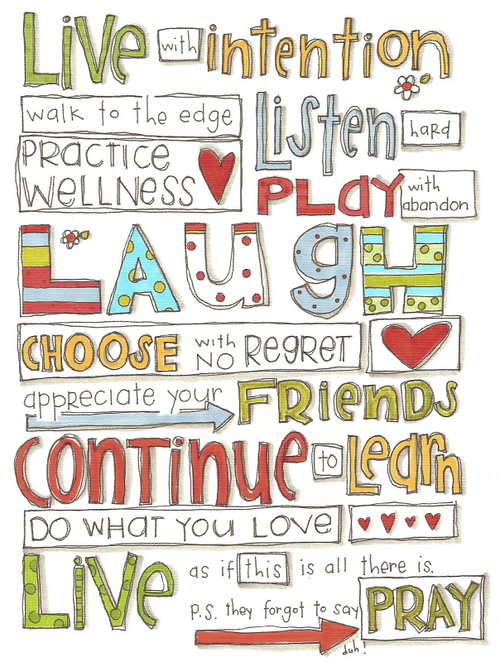 Live with intention
walk to the edge
Listen hard
PRACTICE
WELLNESS
PLAY with abandon
LAUgH
CHOOSE with NO REGRET
appreciate your FRIENDS
CONTINUE to Learn
DO WHAT YOU LOVE
LiVe as if this is all there is.
p.s. they forgot to say PRAY
duh!